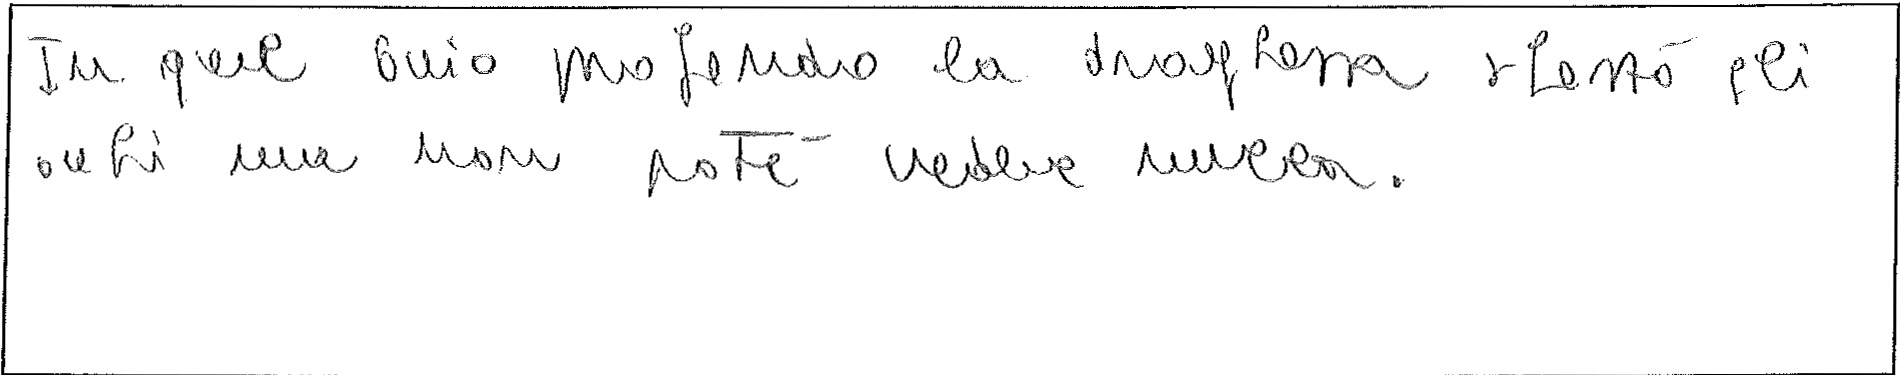 In quel buio profondo la draghessa sbarrò gli
occhi ma non poté vedere nulla.